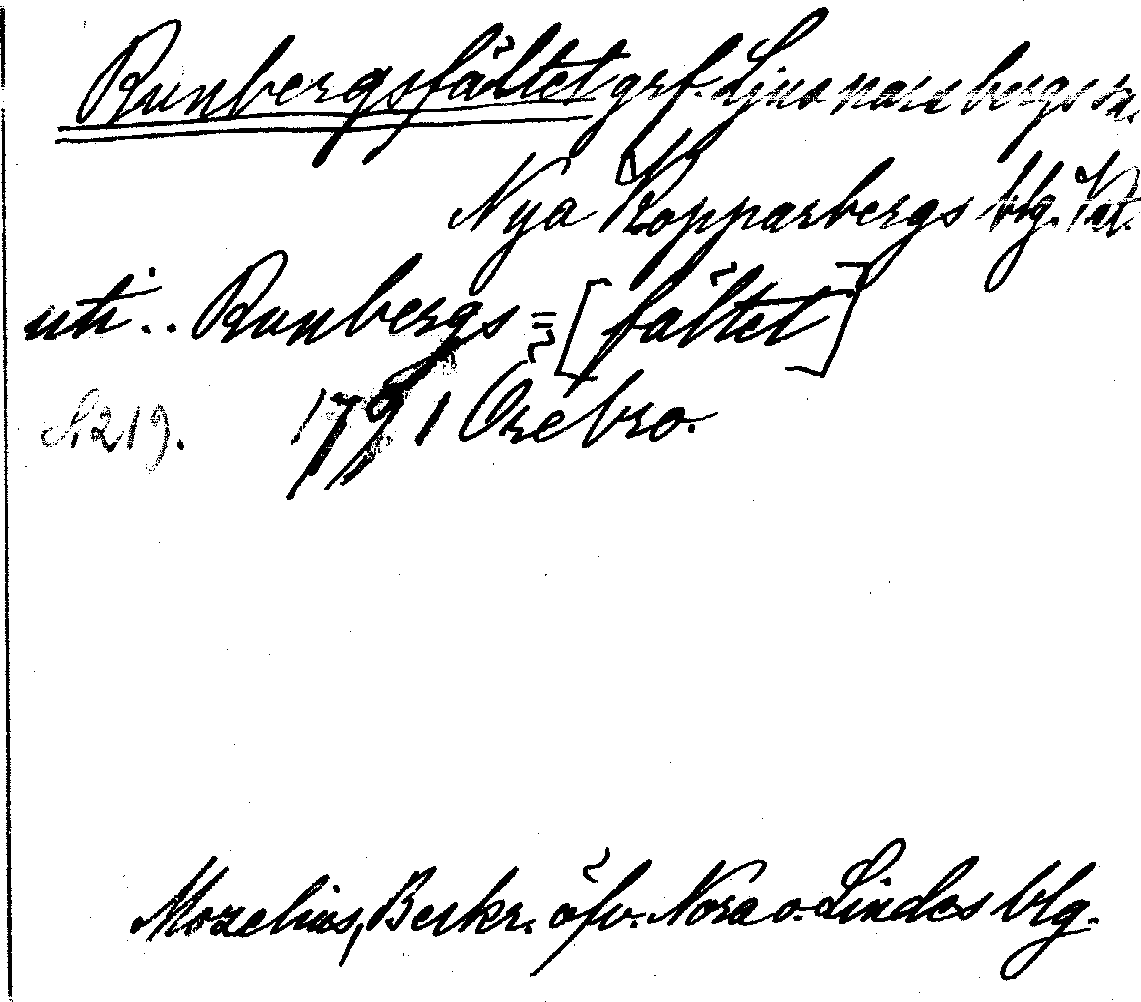 Runbergsfältet grf. Ljusnarsbergs sn.
Nya Kopparbergs blg. Vstm.
uti .. Runbergs = [fältet]
N 219. 1791 Örebro.
Mozelius, Beskr. öfv. Nora o. Lindes blg.